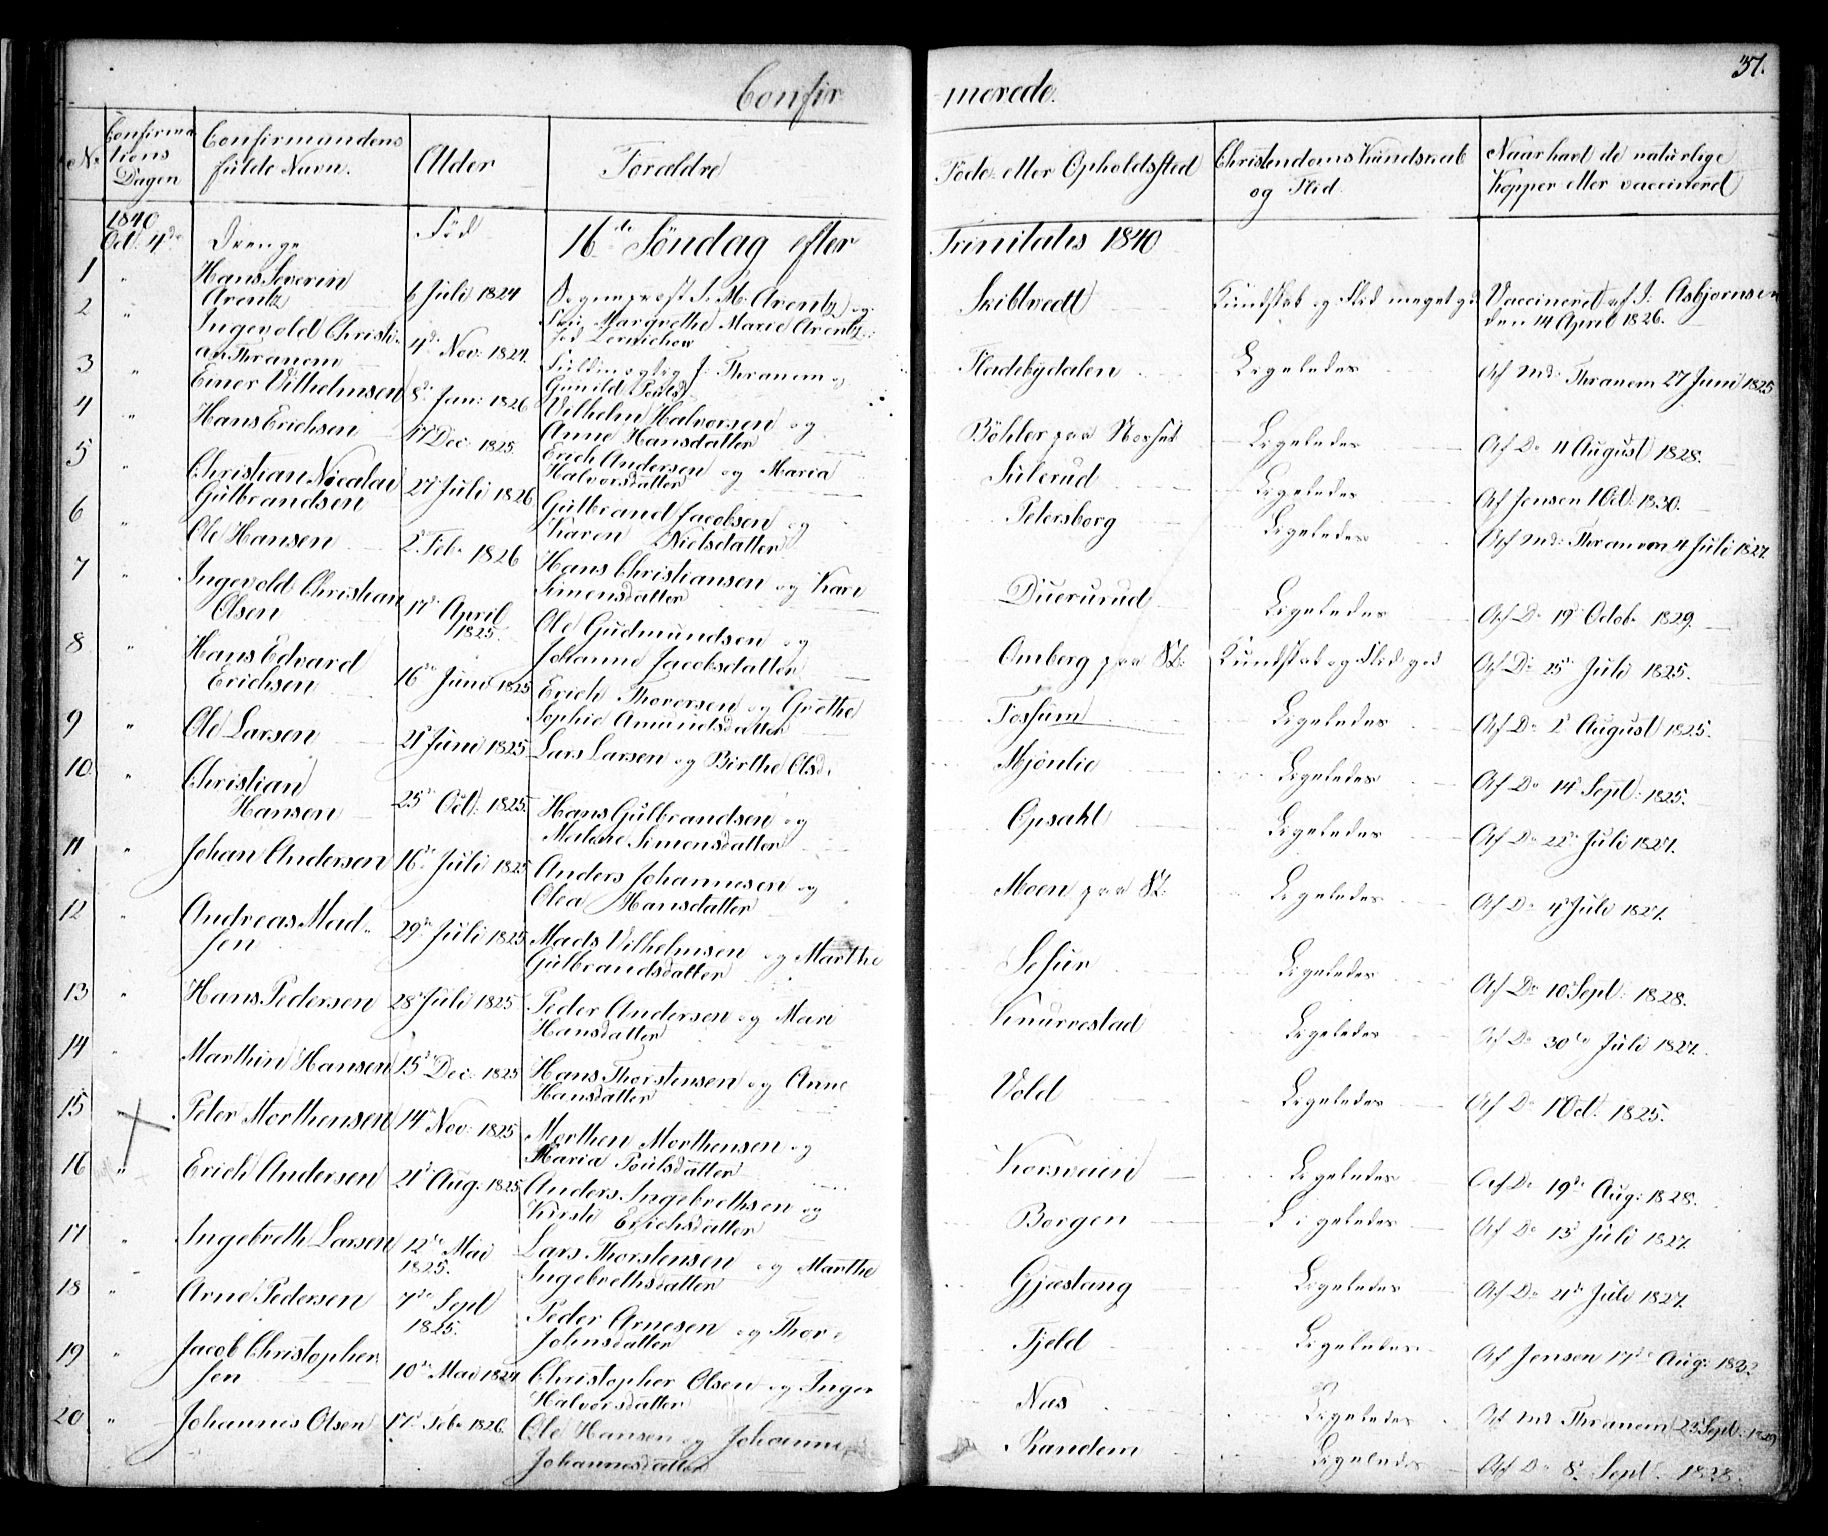 Confir- merede. 37.
No Confirmations Dagen Confirmandens fulde Navn. Alder Foreldre Føde- eller Opholdssted Christendoms Kundskab og Flid. Naar havt de naturlige Kopper eller vaccinered
1840 Oct. 4de Drenge Fød 16de Søndag efter Trinitatis 1840
1 " Hans Severin Arentz 6 Juli 1824 Sogneprest S. M. Arentz og Margrethe Marie Arentz fød Skibtvedt Kundskab og Flid meget god Vaccineret af I: Asbjørnsen den 14 April 1826.
2 " Ingevold Christian Thranem 4de Nov: 1824. J: Thranem og Gunild Pouls Hadebydalen Ligeledes Af Md: Thranem 27 Juni 1825
3 " Einer Vilhelmsen 8de Jan: 1826 Vilhelm Halvorsen og Anne Hansdatter Böhler paa Ligeledes Af Do 11 August 1828.
4 " Hans Erichsen 17 Dec. 1825. Erich Andersen og Maria Halvorsdatter Sulerud Ligeledes Af Jensen 1 Oct: 1830.
5 " Christian Nicolai Gulbrandsen 27 Juli 1826 Gulbrand Jacobsen og Karen Nielsdatter Petersborg Ligeledes Af Md: Thranem 4 Juli 1827.
6 " Ole Hansen 2 Feb. 1826 Hans Christiansen og Kari Simensdatter Duerurud Ligeledes Af Do 19 Octob. 1829.
7 " Ingevold Christian Olsen 17de April 1825. Ole Gudmundsen og Johanne Jacobsdatter Omberg paa Kundskab og Flid god Af Do 25 Juli 1825.
8 " Hans Edvard Erichsen 16de Juni 1825 Erich Thoresen og Grethe Sophie Amundsdatter Fossum Ligeledes Af Do 2 August 1825.
9 " Ole Larsen 21 Juni 1825 Lars Larsen og Birthe Olsd. Mjönlie Ligeledes Af Do 14 Sept: 1825.
10 " Christian Hansen 25 Oct: 1825. Hans Gulbrandsen og Malene Simensdatter Opsahl Ligeledes Af Do 22de Juli 1827.
11 " Johan Andersen 16de Juli 1825 Anders Johannesen og Olea Hansdatter Moen paa Ligeledes Af Do 4 Juli 1827.
12 " Andreas Madsen 29de Juli 1825 Mads Vilhelmsen og Marthe Gulbrandsdatter Ligeledes Af Do 10 Sept: 1828.
13 " Hans Pedersen 28 Juli 1825 Peder Andersen og Mari Hansdatter Knurvestad Ligeledes Af Do 30te Juli 1827.
14 " Marthin Hansen 15 Dec: 1825 Hans Thorstensen og Anne Hansdatter Vold Ligeledes Af Do 1 Oct. 1825.
15 Peter Morthensen 14 Nov: 1825 Morthen Morthensen og Maria Poulsdatter Korsveien Ligeledes Af Do 19de Aug: 1828.
16 " Erich Andersen 21 Aug: 1825 Anders Ingebrethsen og Kirsti Erichsdatter Borgen Ligeledes Af Do 13 Juli 1827.
17 " Ingebreth Larsen 12te Mai 1825. Lars Thorstensen og Marthe Ingebrethsdatter Gjæstang Ligeledes Af Do 21de Juli 1827.
18 " Arne Pedersen 7de Sept 1825. Peder Arnesen og Thore Johnsdatter Fjeld Ligeledes Af Jensen 17de Aug:
19 " Jacob Christophersen 10de Mai 1824 Christopher Olsen og Inger Halvorsdatter Næs Ligeledes Af Md Thranem 23 Sept:
20 " Johannes Olsen 17 Feb. 1826. Ole Hansen og Johanne Johannesdatter Kandem Ligeledes Af Do 8 Sept. 1828.